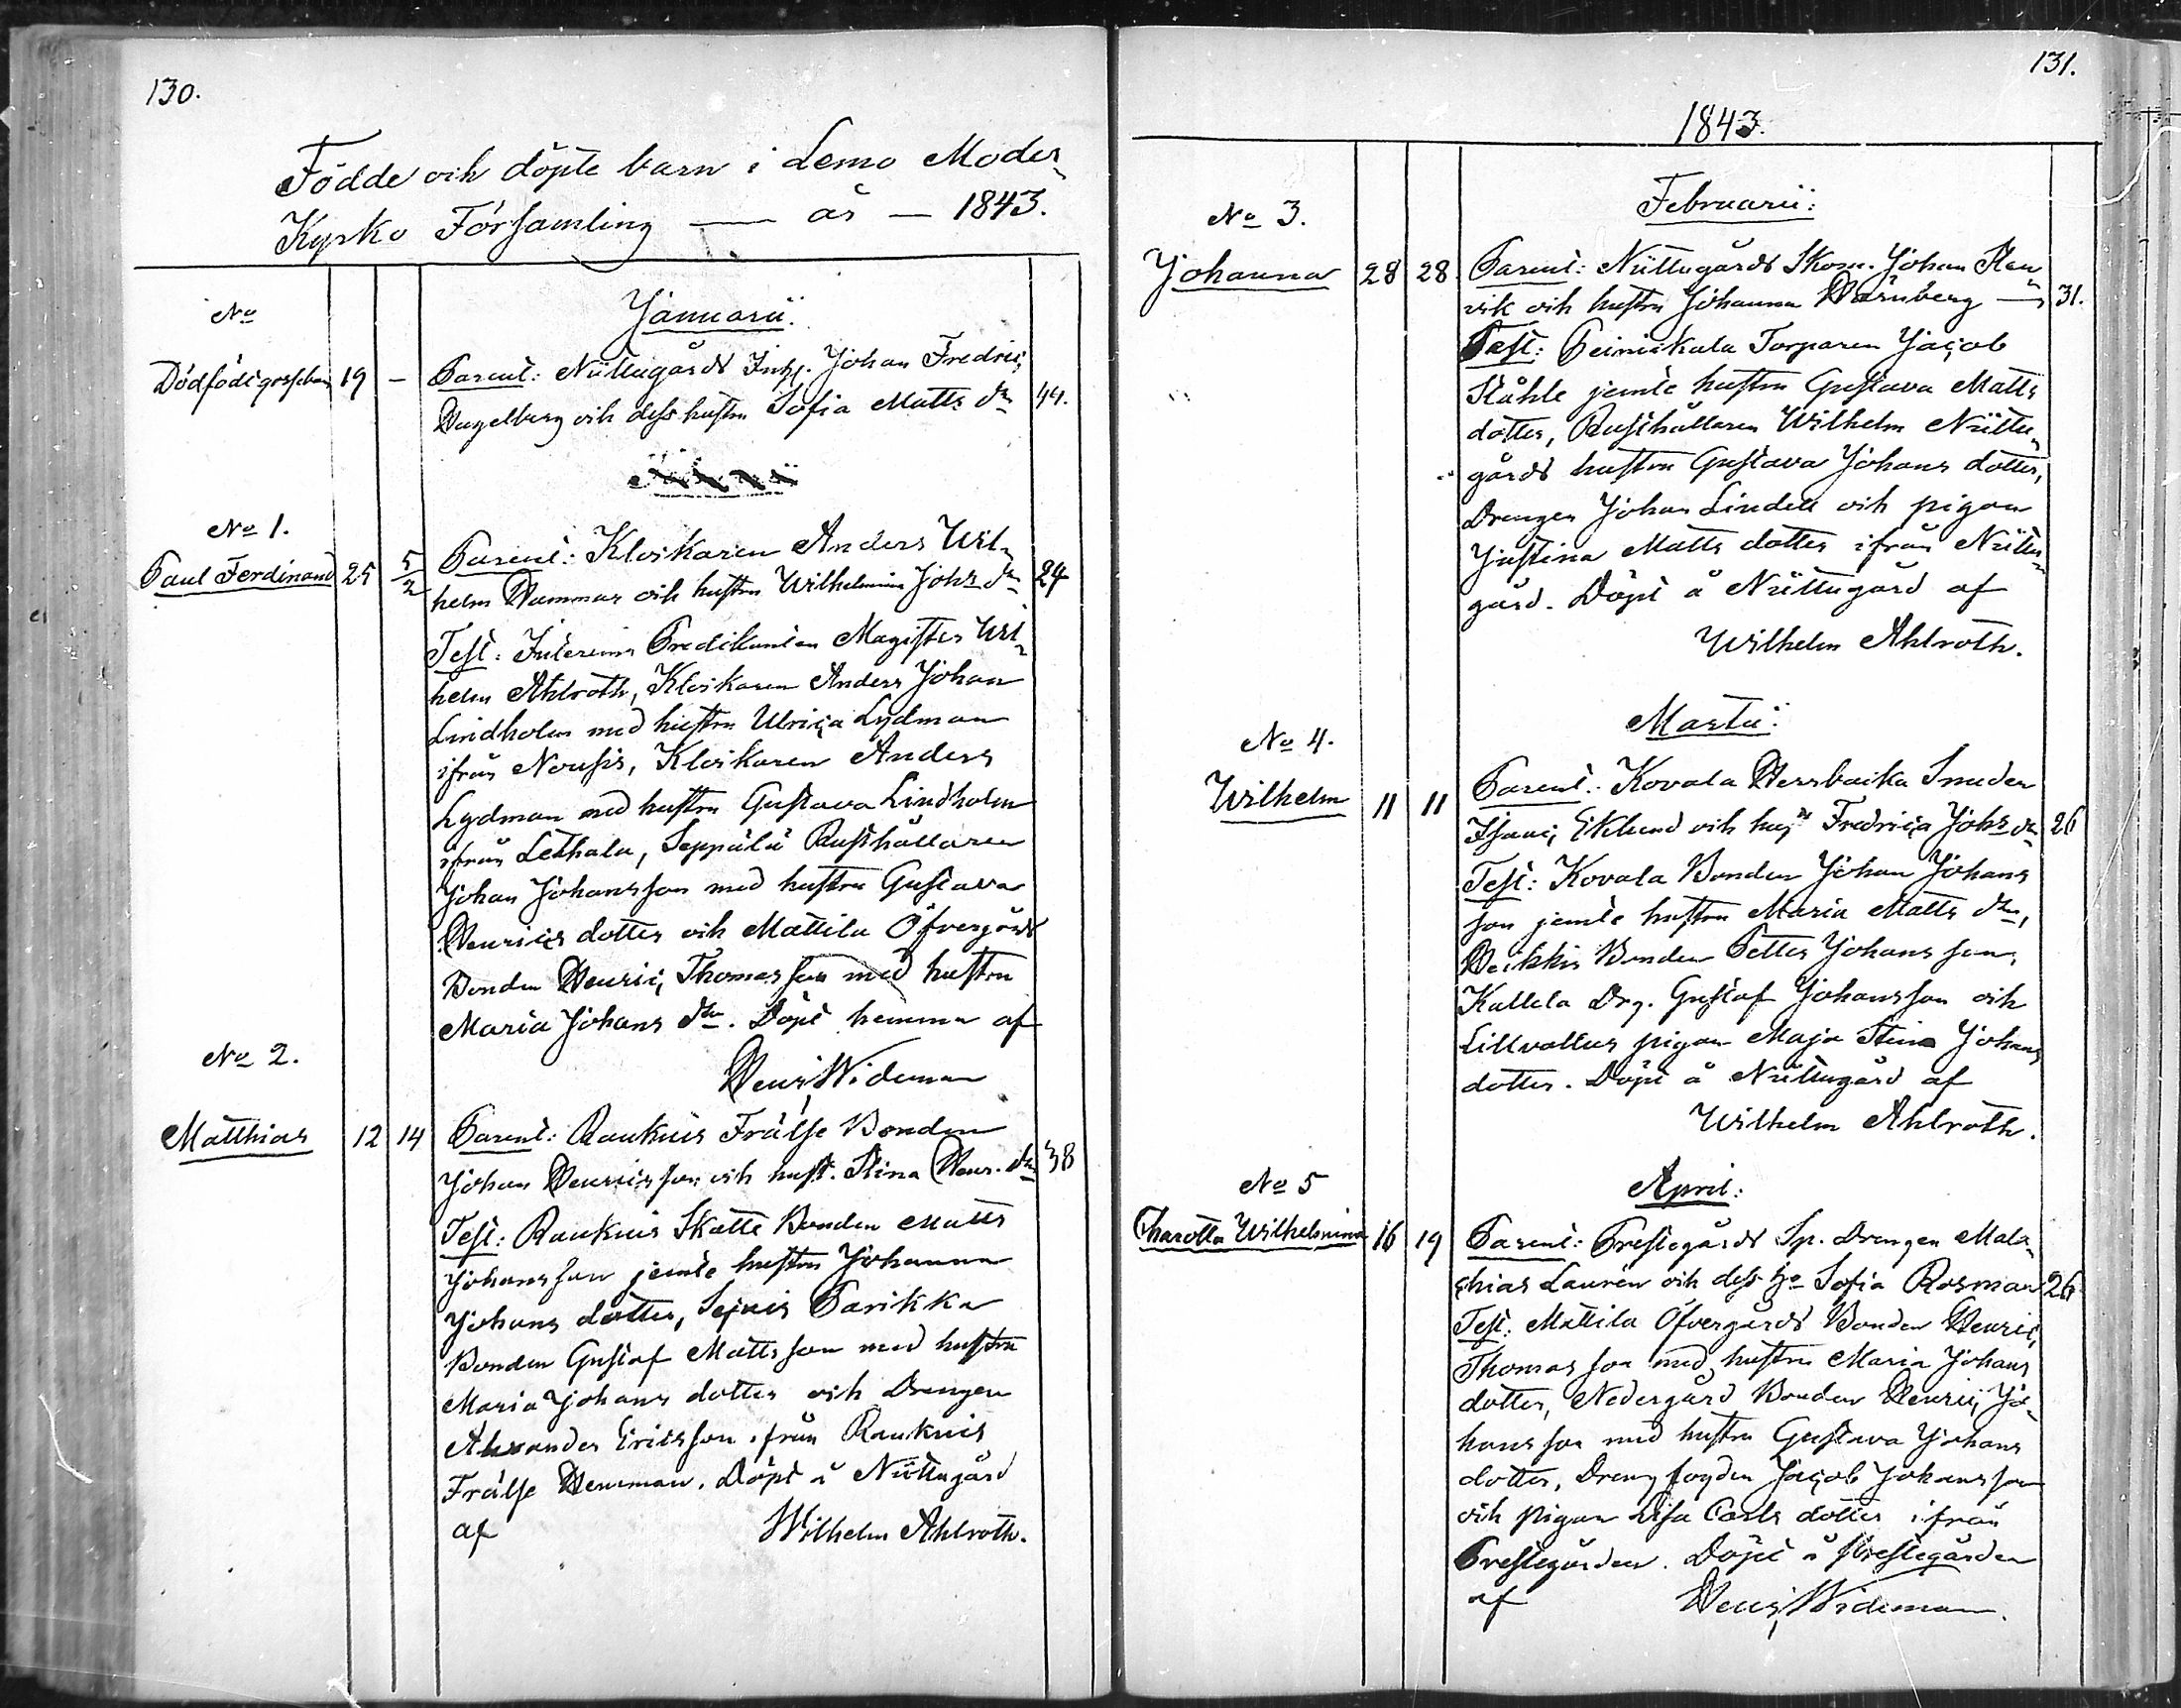 130.
Födde och döpte barn i Lemo Moder
Kyrko Församling — år — 1843.
No
Januarii.
Dödfödt gossebarn 19 – Parent: Nüttugårds Insp. Johan Fredric
Hagelberg och dess hustru Sofia Matts dr 44.
No 1.
Paul Ferdinand 25 5/2 Parent: Klockaren Anders Wil
helm Hammar och hustru Wilhelmina Johs dr 24
Test: Interims Predikanten Magister Wil
helm Ahlroth, Klockaren Anders Johan
Lindholm med hustru Ulrica Lydman
ifrån Nousis, Klockaren Anders
Lydman med hustru Gustava Lindholm
ifrån Lethala, Seppälä Rusthållaren
Johan Johansson med hustru Gustava
Henrics dotter och Mattila Öfvergårds
Bonden Henric Thomasson med hustru
Maria Johans dtr. Döpt hemma af
Henr. Wideman
No 2.
Matthias 12 14 Parent: Raukuis Frälse Bonden
Johan Henricsson och hust. Stina Henr. dr 38
Test: Raukuis Skatte Bonden Matts
Johansson jemte hustru Johanna
Johans dotter, Parikka
Bonden Gustaf Mattsson med hustru
Maria Johans dotter och Drengen
Alexander Ericsson ifrån Raukuis
Frälse Hemman. Döpt å Nüttugård
af Wilhelm Ahlroth.
131.
1843.
No 3.
Februarii:
Johanna 28 28 Parent: Nüttugårds Skom. Johan
vik och hustru Johanna Wärnberg — 31.
Test: Torparen Jacob
Ståhle jemte hustru Gustava Matts
dotter, Rusthållaren Wilhelm Nüttu
gårds hustru Gustava Johans dotter,
Drengen Johan Lindell och pigan
Justina Matts dotter ifrån Nüttu
gård. Döpt å Nüttugård af
Wilhelm Ahlroth.
Martii:
No 4.
Wilhelm 11 11 Parent: Kovala Herrbacka Smeden
Isaac Eklund och hust Fredrica Johs dr 26
Test: Kovala Bonden Johan Johans
son jemte hustru Maria Matts dtr,
Heikkis Bonden Petter Johansson,
Kallela Drg. Gustaf Johansson och
Lillvallus pigan Maja Stina Johans
dotter. Döpt å Nüttugård af
Wilhelm Ahlroth.
No 5
April:
Charotta Wilhelmina 16 19 Parent: Prestegårds Sp. Drengen Mala
chias Laurén och dess ho Sofia Rosmar 26
Test: Mattila Öfvergårds Bonden Henric
Thomasson med hustru Maria Johans
dotter, Nedergård Bonden Henric Jo
hansson med hustru Gustava Johans
dotter, Dreng fogden Jacob Johansson
och pigan Lisa Carls dotter ifrån
Prestegården. Döpt å Prestegården
af Henr. Wideman.